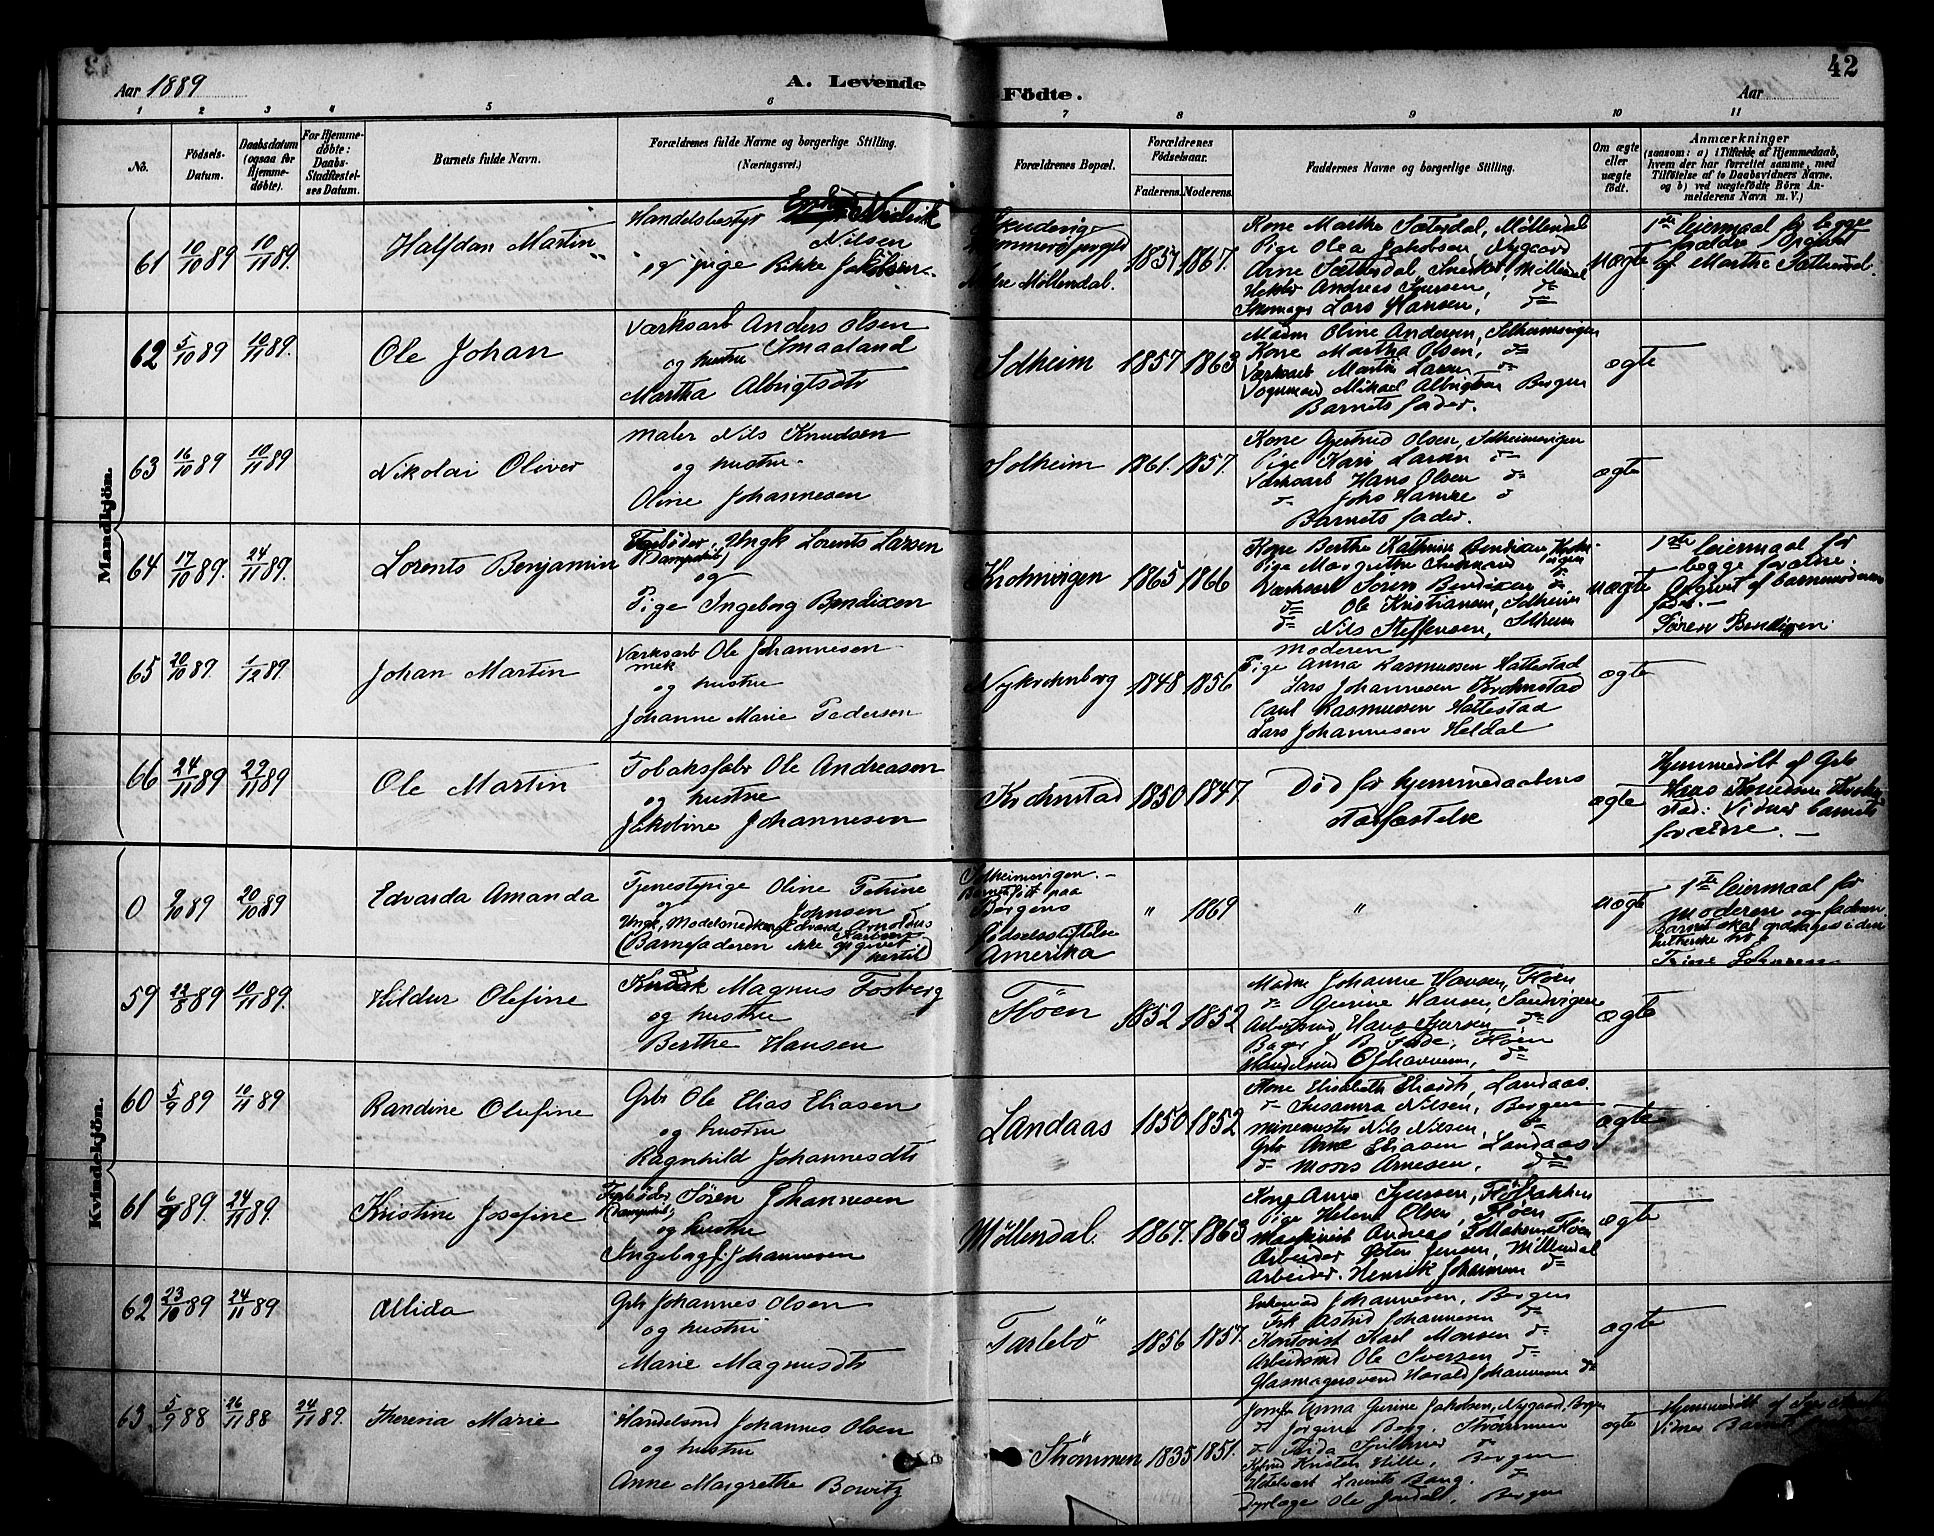 Aar 1889
A. Levende
Födte.
Aar
42
1 2 3 4 5 6 7 8 9 10 11
No.
Födsels-Datum.
Daabsdatum (ogsaa for Hjemme-döbte).
For Hjemme-döbte: Daabs-Stadfæstel-ses Datum.
Barnets fulde Navn.
Forældrenes fulde Navne og borgerlige Stilling.
(Næringsvei.)
Forældrenes Bopæl.
Forældrenes Födselsaar.
Faderens. Moderens.
Faddernes Navne og borgerlige Stilling.
Om ægte eller uægte födt.
Anmærkninger
(saasom: a) i Tilfælde af Hjemmedaab,
hvem der har forrettet samme, med
Tilföielse af to Daabsvidners Navne,
og b) ved uægtefödte Börn An-
melderens Navn m.V.)
Mandkjön.
61 10/10 89 10/11 89. Halfdan Martin
Handelsbestyr
Nilsen
og pige Rikke Jakobsen
Nedre Möllendal.
1867.
Kone Marthe Sætersdal, Möllendal
Pige Olea Jakobsen Nygaard
Arne Sætersdal Snedker Möllendal
Andreas Sjursen,
Skomager Lars Hansen, do
uægte
1ste leiermaal for begge
forældre Opgivet
af Marthe Sætersdal.
62 5/10 89 10/11 89. Ole Johan
Værksarb Anders Olsen
Smaaland
og hustru
Martha Albrigtsdtr
Solheim 1857 1863
Madm Oline Andersen, Solheimsvigen
Kone Martha Olsen, do
Værksarb Martin Larsen do
Vognmand Mikael Albrigtsen Bergen
Barnets fader.
ægte
63 16/10 89 10/11 89 Nikolai Oliver
Maler Nils Knudsen
og hustru
Oline Johannesen
Solheim 1861. 1857.
Kone Gjertrud Olsen, Solheimsvigen
Pige Kari Larsen do
Værksarb Hans Olsen do
do Johs Hamre do
Barnets fader.
ægte
64 17/10 89. 24/11 89. Lorents Benjamin
Ungk Lorents Larsen
og
Pige Ingeborg Bendixen
Krohnvigen 1865 1866
Kone Berthe Kathrine Bendixen
Pige Margrethe
Værksarb Sören Bendixen do
do Ole Kristiansen, Solheim
do Nils Steffensen, Solheim
uægte
1ste leiermaal for
begge forældre.
Opgivet af barnemoderens
fader.
Sören Bendixen.
65 20/10 89. 1/12 89. Johan Martin
Værksarb Ole Johannesen
mek
og hustru
Johanne Marie Pedersen
Nykrohnborg 1848 1856
Moderen
Pige Anna Rasmussen Hattestad
Lars Johannesen Krohnstad
Carl Rasmussen Hattestad
Lars Johannesen Heldal
ægte
66 24/11 89 29/11 89 Ole Martin
Tobaksfabr Ole Andreasen
og hustru
Jakobine Johannesen
Krohnstad 1850 1847
Död før hjemmedaabens
stadfæstelse
ægte
Hjemmedöbt af Grb
Vidner barnets
forældre.
Kvindekjön.
0 9/10 89 20/10 89 Edvarda Amanda
Tjenestepige Oline Petrine
og Johnsen
Ungk. Edvard Arnoldus
(Barnefaderen ikke opgivet
hertil)
Solheimsvigen.
Barnet födt paa
Bergens
Födselsstiftelse
Amerika
" 1869
"
uægte
1ste leiermaal for
moderen og faderen.
Barnet skal opdrages i den
lutherske tro
Trine Johnsen
59 22/8 89 10/11 89. Hildur Olefine
Magnus Fosberg
og hustru
Berthe Hansen
Flöen 1852 1852
Madm Johanne Hansen, Flöen
do Gurine Hansen, Sandvigen
Arbeidsmd Hans Sjursen do
Bager J B Flöen
Handelsmd O Johannesen, do
ægte
60 5/9 89 10/11 89 Randine Olufine
Grb Ole Elias Eliasen
og hustru
Ragnhild Johannesdtr
Landaas 1850 1852
Kone Elisabeth Eliasdtr, Landaas.
do Susanna Nilsen, Bergen
Minemester Nils Nilsen, do
Grb Arne Eliasen Landaas
do Mons Arnesen, do
ægte
61 6/9 89. 24/11 89. Kristine Josefine
Sören Johannesen
og hustru
Ingeborg Johannesen
Möllendal. 1867. 1863
Kone Anna Sjursen, Flöibakken
Pige Helene Olsen, Flöen
Maskinist Andreas Flöen
Arbeider Peter Jensen, Möllendal
Arbeider. Henrik Johannesen do
ægte
62 23/10 89 24/11 89 Alida
Grb Johannes Olsen
og hustru
Marie Magnusdtr
Tarlebö 1856 1857.
Johannesen, Bergen
Frk Astrid Johannesen do
Kontorist Karl Monsen do
Arbeidsmd Ole Iversen do
Glasmagersvend Harald Johannesen do
ægte
63 5/9 88 26/11 88 24/11 89. Theresia Marie
Handelsmd Johannes Olsen
og hustru
Anne Margrethe Bowitz
Strömmen 1835 1851.
Jomfr Anna Gurine Jakobsen, Nygaard, Bergen
do Jörgine Berg, Strömmen
do
Kristen Hille, Bergen
Laurits Bang. do
Ole Bergen
ægte
Hjemmedöbt af
Vidner Barnets